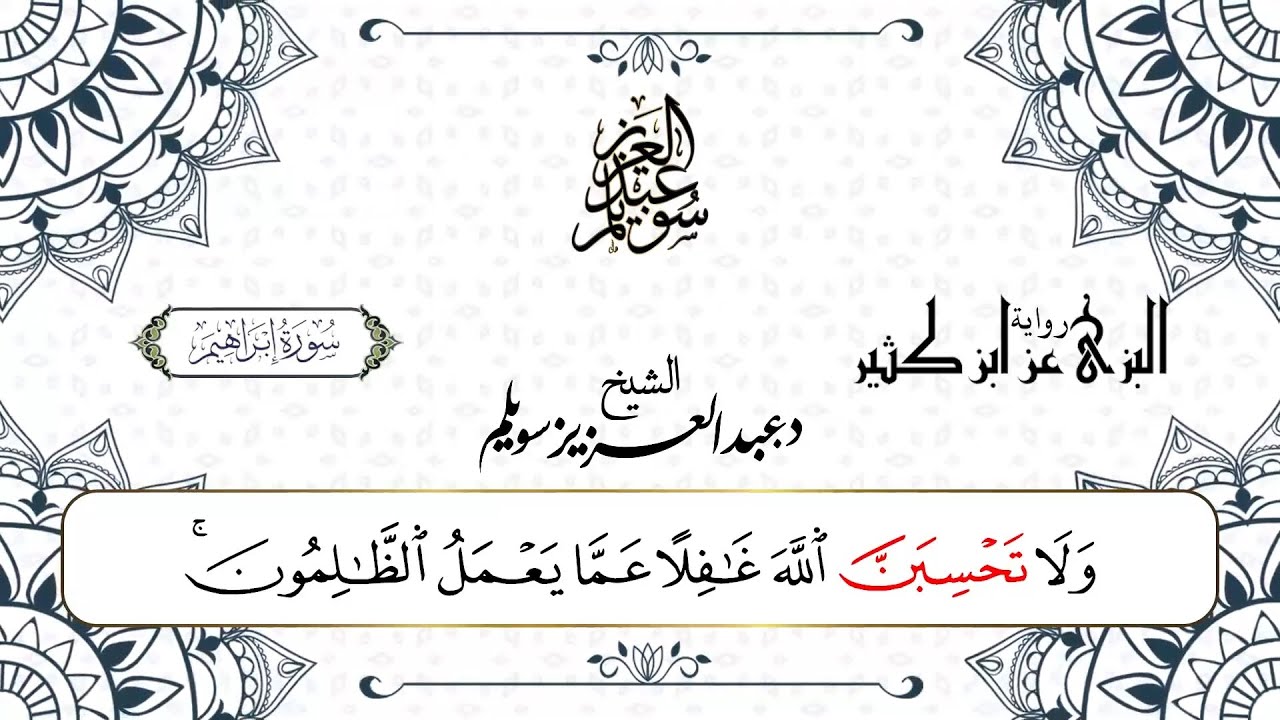 عبد العزيز سويلم
رواية
البزي عن ابن كثير
سُورَةُ إِبْرَاهِيمَ
الشيخ
د عبد العزيز سويلم
وَلَا تَحْسِبَنَّ ٱللَّهَ غَٰفِلًا عَمَّا يَعْمَلُ ٱلظَّٰلِمُونَ ۚ